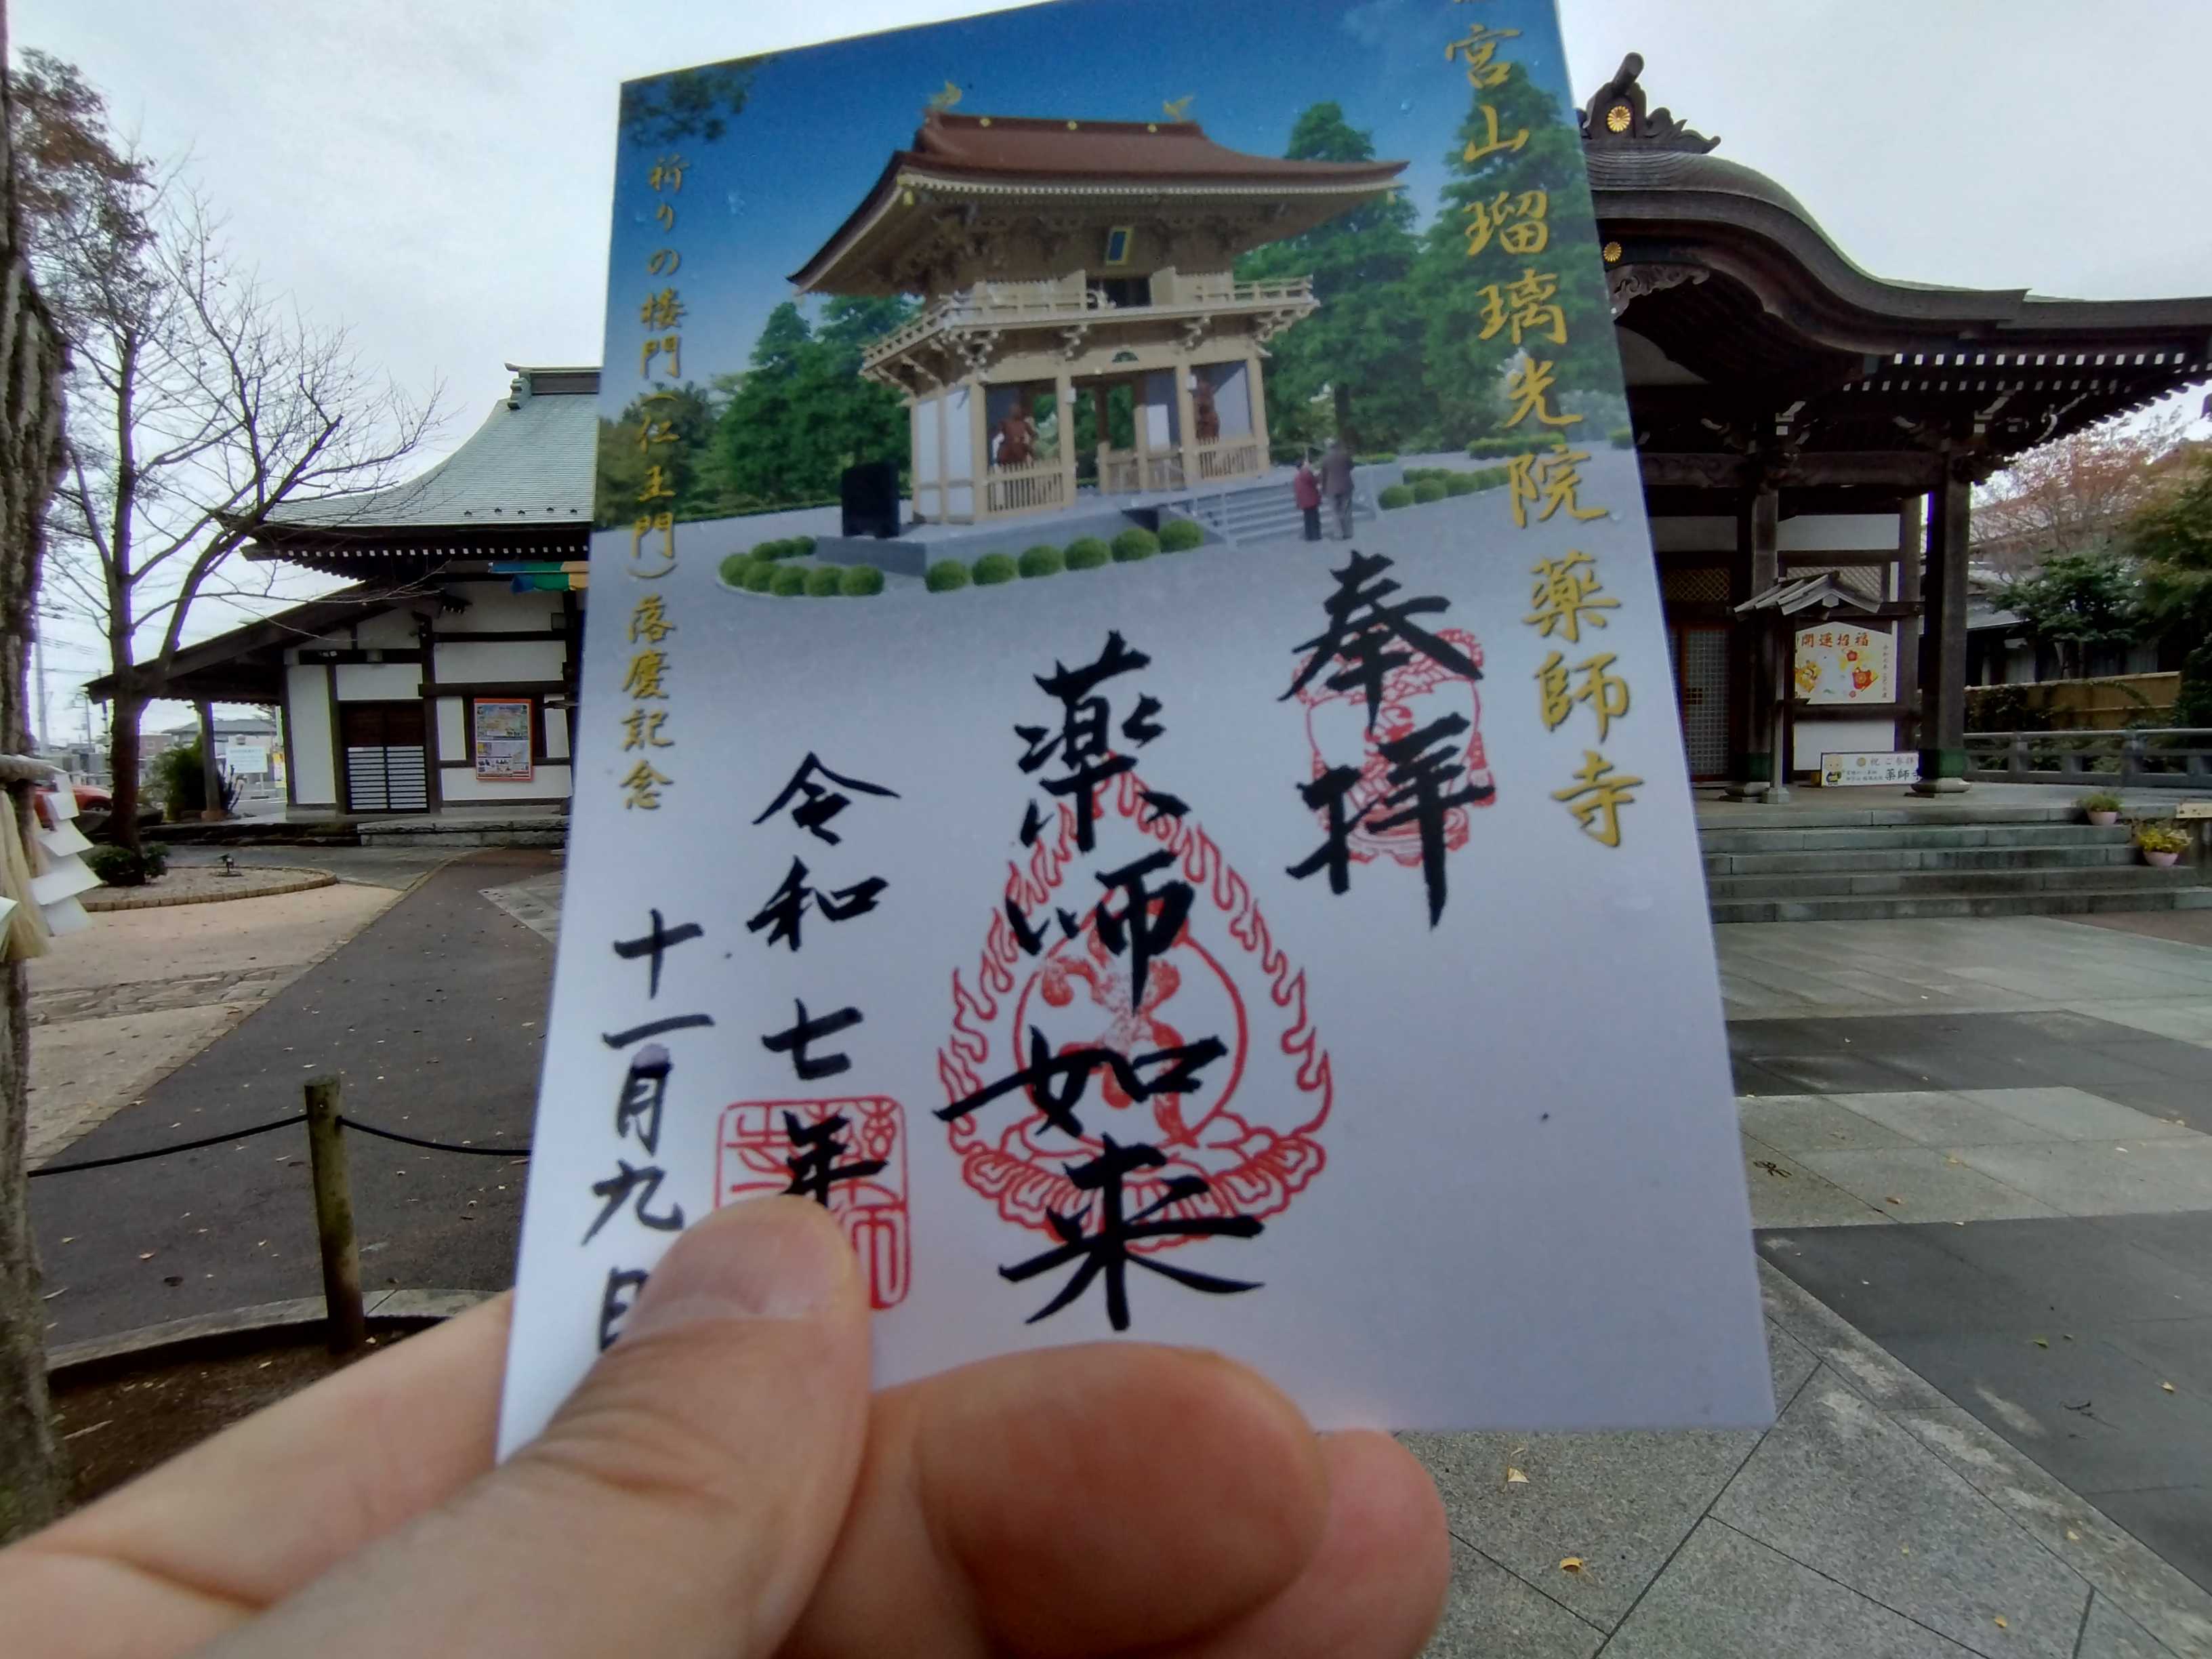 宮山瑠璃光院 薬師寺
奉拝
薬師如来
令和七年
十一月九日
祈りの楼門(仁王門)落慶記念
開運招福
薬師寺